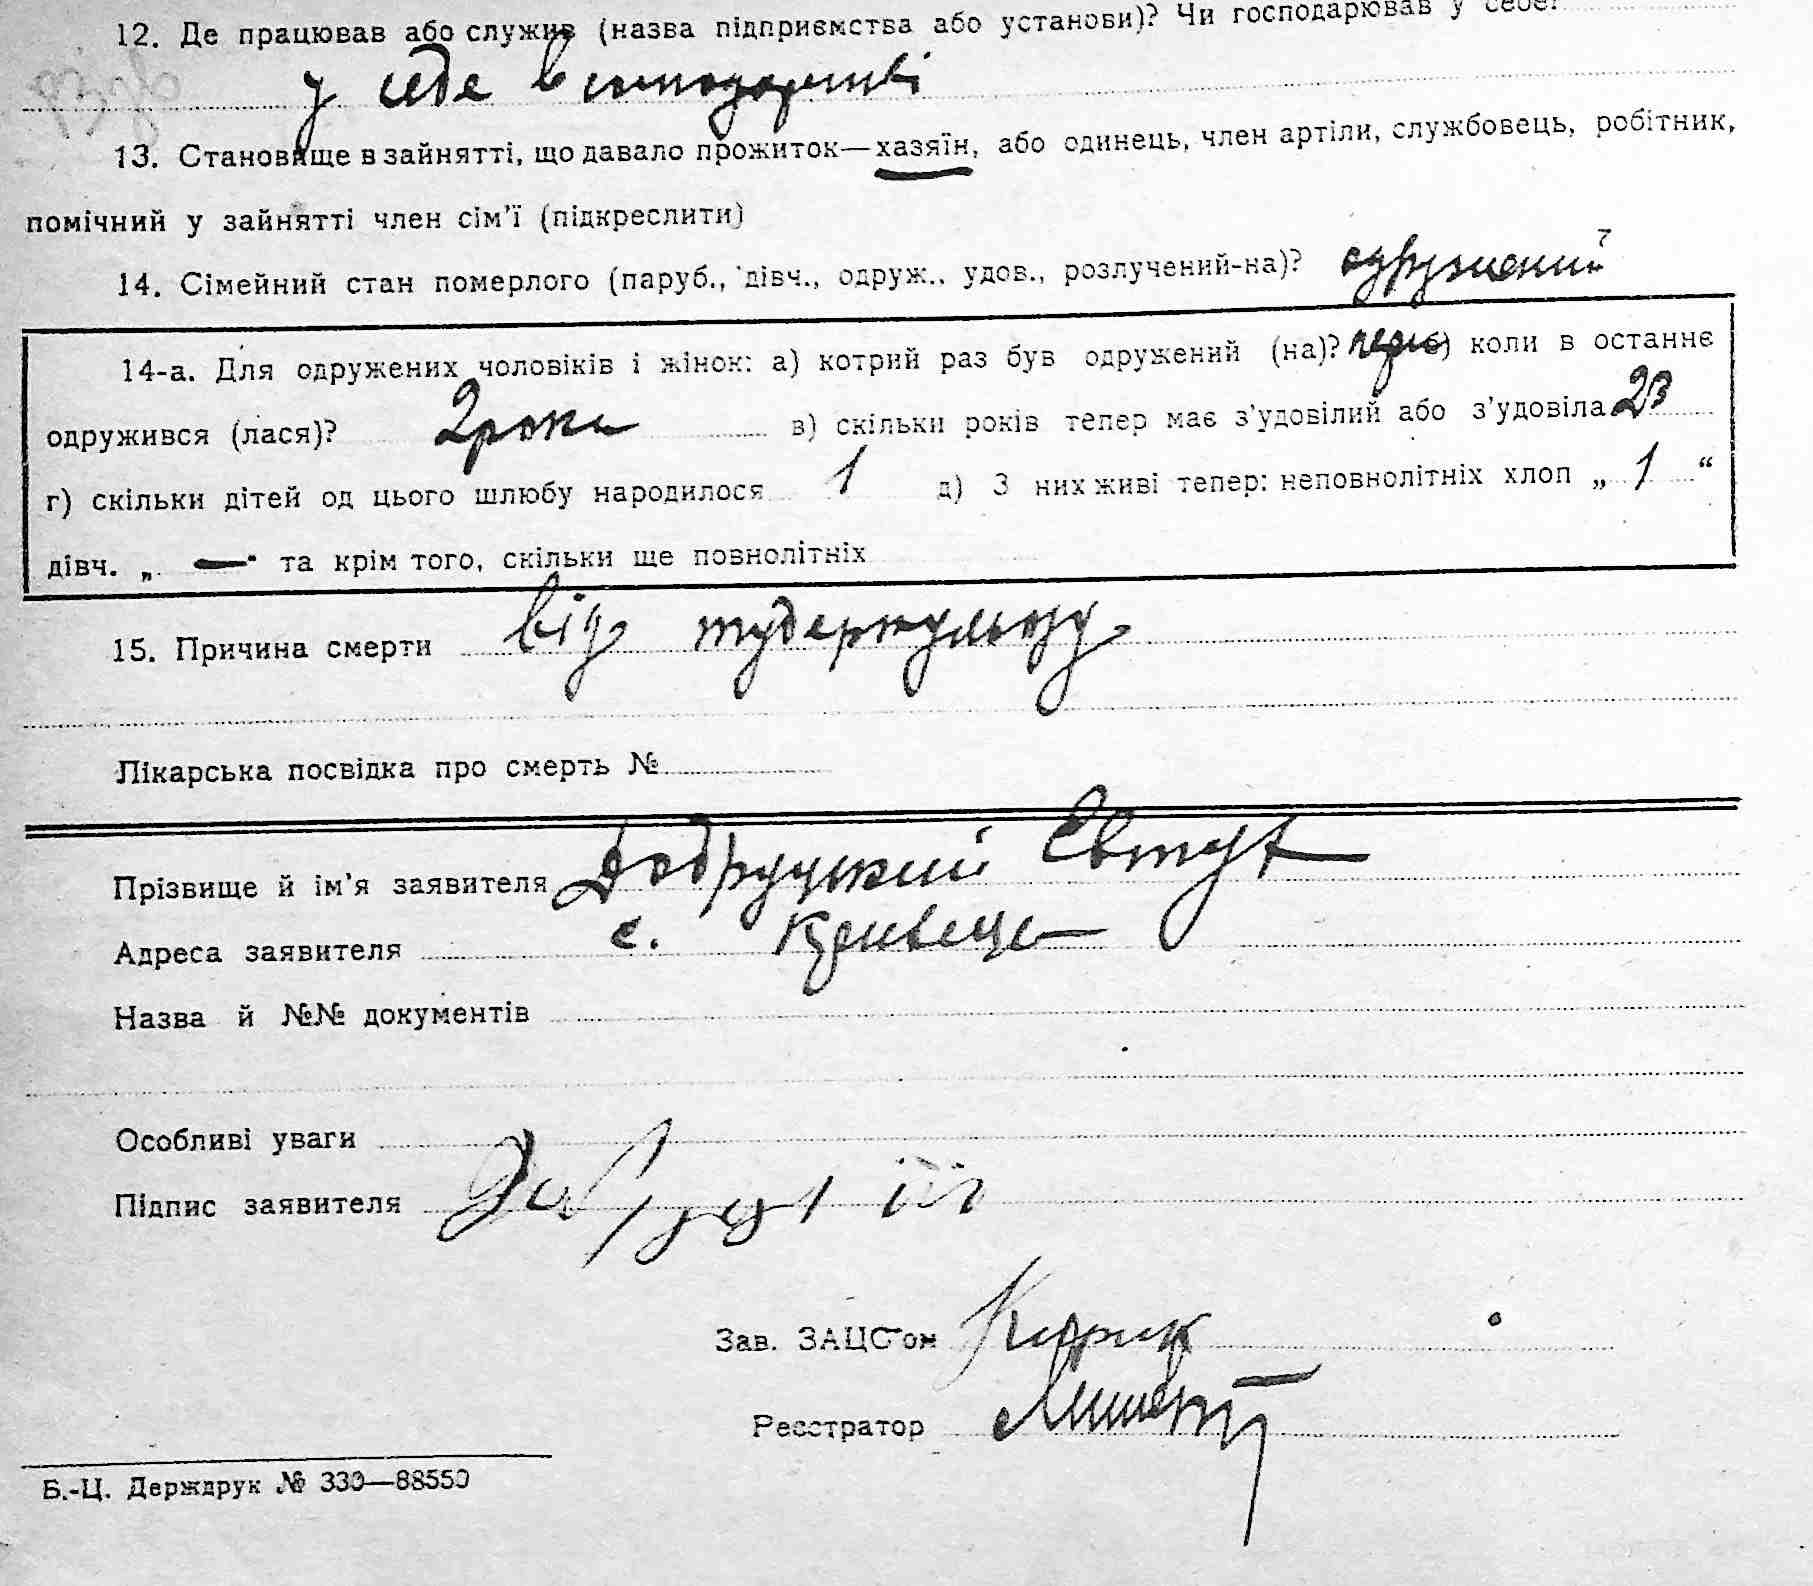 12. Де працював або служив (назва підприємства або установи)? Чи господарював у себе?
у себе в господарстві
13. Становище в зайнятті, що давало прожиток—хазяїн, або одинець, член артіли, службовець, робітник,
помічний у зайнятті член сім'ї (підкреслити)
14. Сімейний стан померлого (паруб., дівч., одруж., удов., розлучений-на)? одружений
14-а. Для одружених чоловіків і жінок: а) котрий раз був одружений (на)? коли в останнє
одружився (лася)? 2 роки в) скільки років тепер має з'удовілий або з'удовіла 23
г) скільки дітей од цього шлюбу народилося 1 д) З них живі тепер: неповнолітніх хлоп „ 1 “
дівч. „ — “ та крім того, скільки ще повнолітніх
15. Причина смерти від туберкульозу
Лікарська посвідка про смерть №
Прізвище й ім'я заявителя Добруцкий Евтух
Адреса заявителя с. Кривець
Назва й №№ документів
Особливі уваги
Підпис заявителя
Зав. ЗАЦС'ом
Реєстратор
Б.-Ц. Держдрук № 330—88550